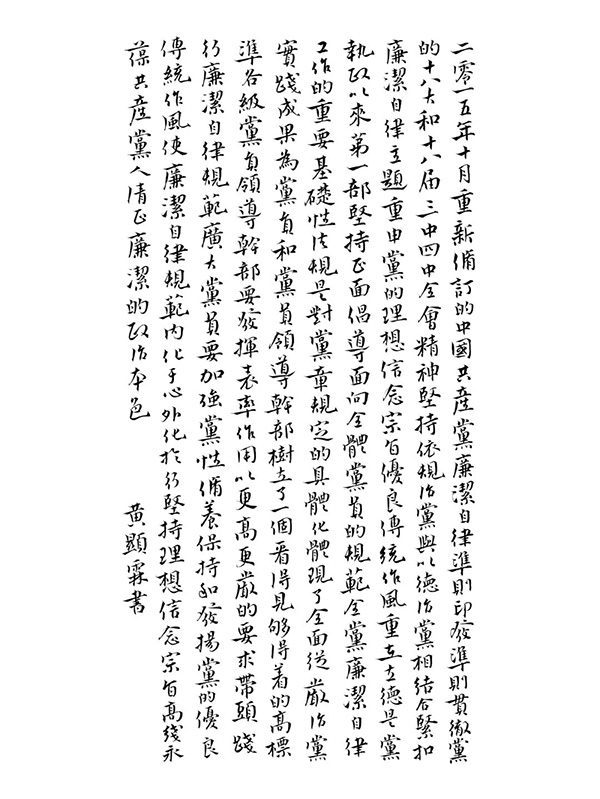 二零一五年十月重新修訂的中國共産黨廉潔自律準則印發準則貫徹黨
的十八大和十八届三中四中全會精神堅持依規治黨與以德治黨相結合緊扣
廉潔自律主題重申黨的理想信念宗旨優良傳統作風重在立德是黨
執政以來第一部堅持正面倡導面向全體黨員的規範全黨廉潔自律
工作的重要基礎性法規是對黨章規定的具體化體現了全面從嚴治黨
實踐成果為黨員和黨員領導幹部樹立了一個看得見够得着的高標
準各級黨員領導幹部要發揮表率作用以更高更嚴的要求帶頭踐
行廉潔自律規範廣大黨員要加強黨性修養保持和發揚黨的優良
傳統作風使廉潔自律規範内化于心外化於行堅持理想信念宗旨高綫永
葆共産黨人清正廉潔的政治本色 黄顯霖書